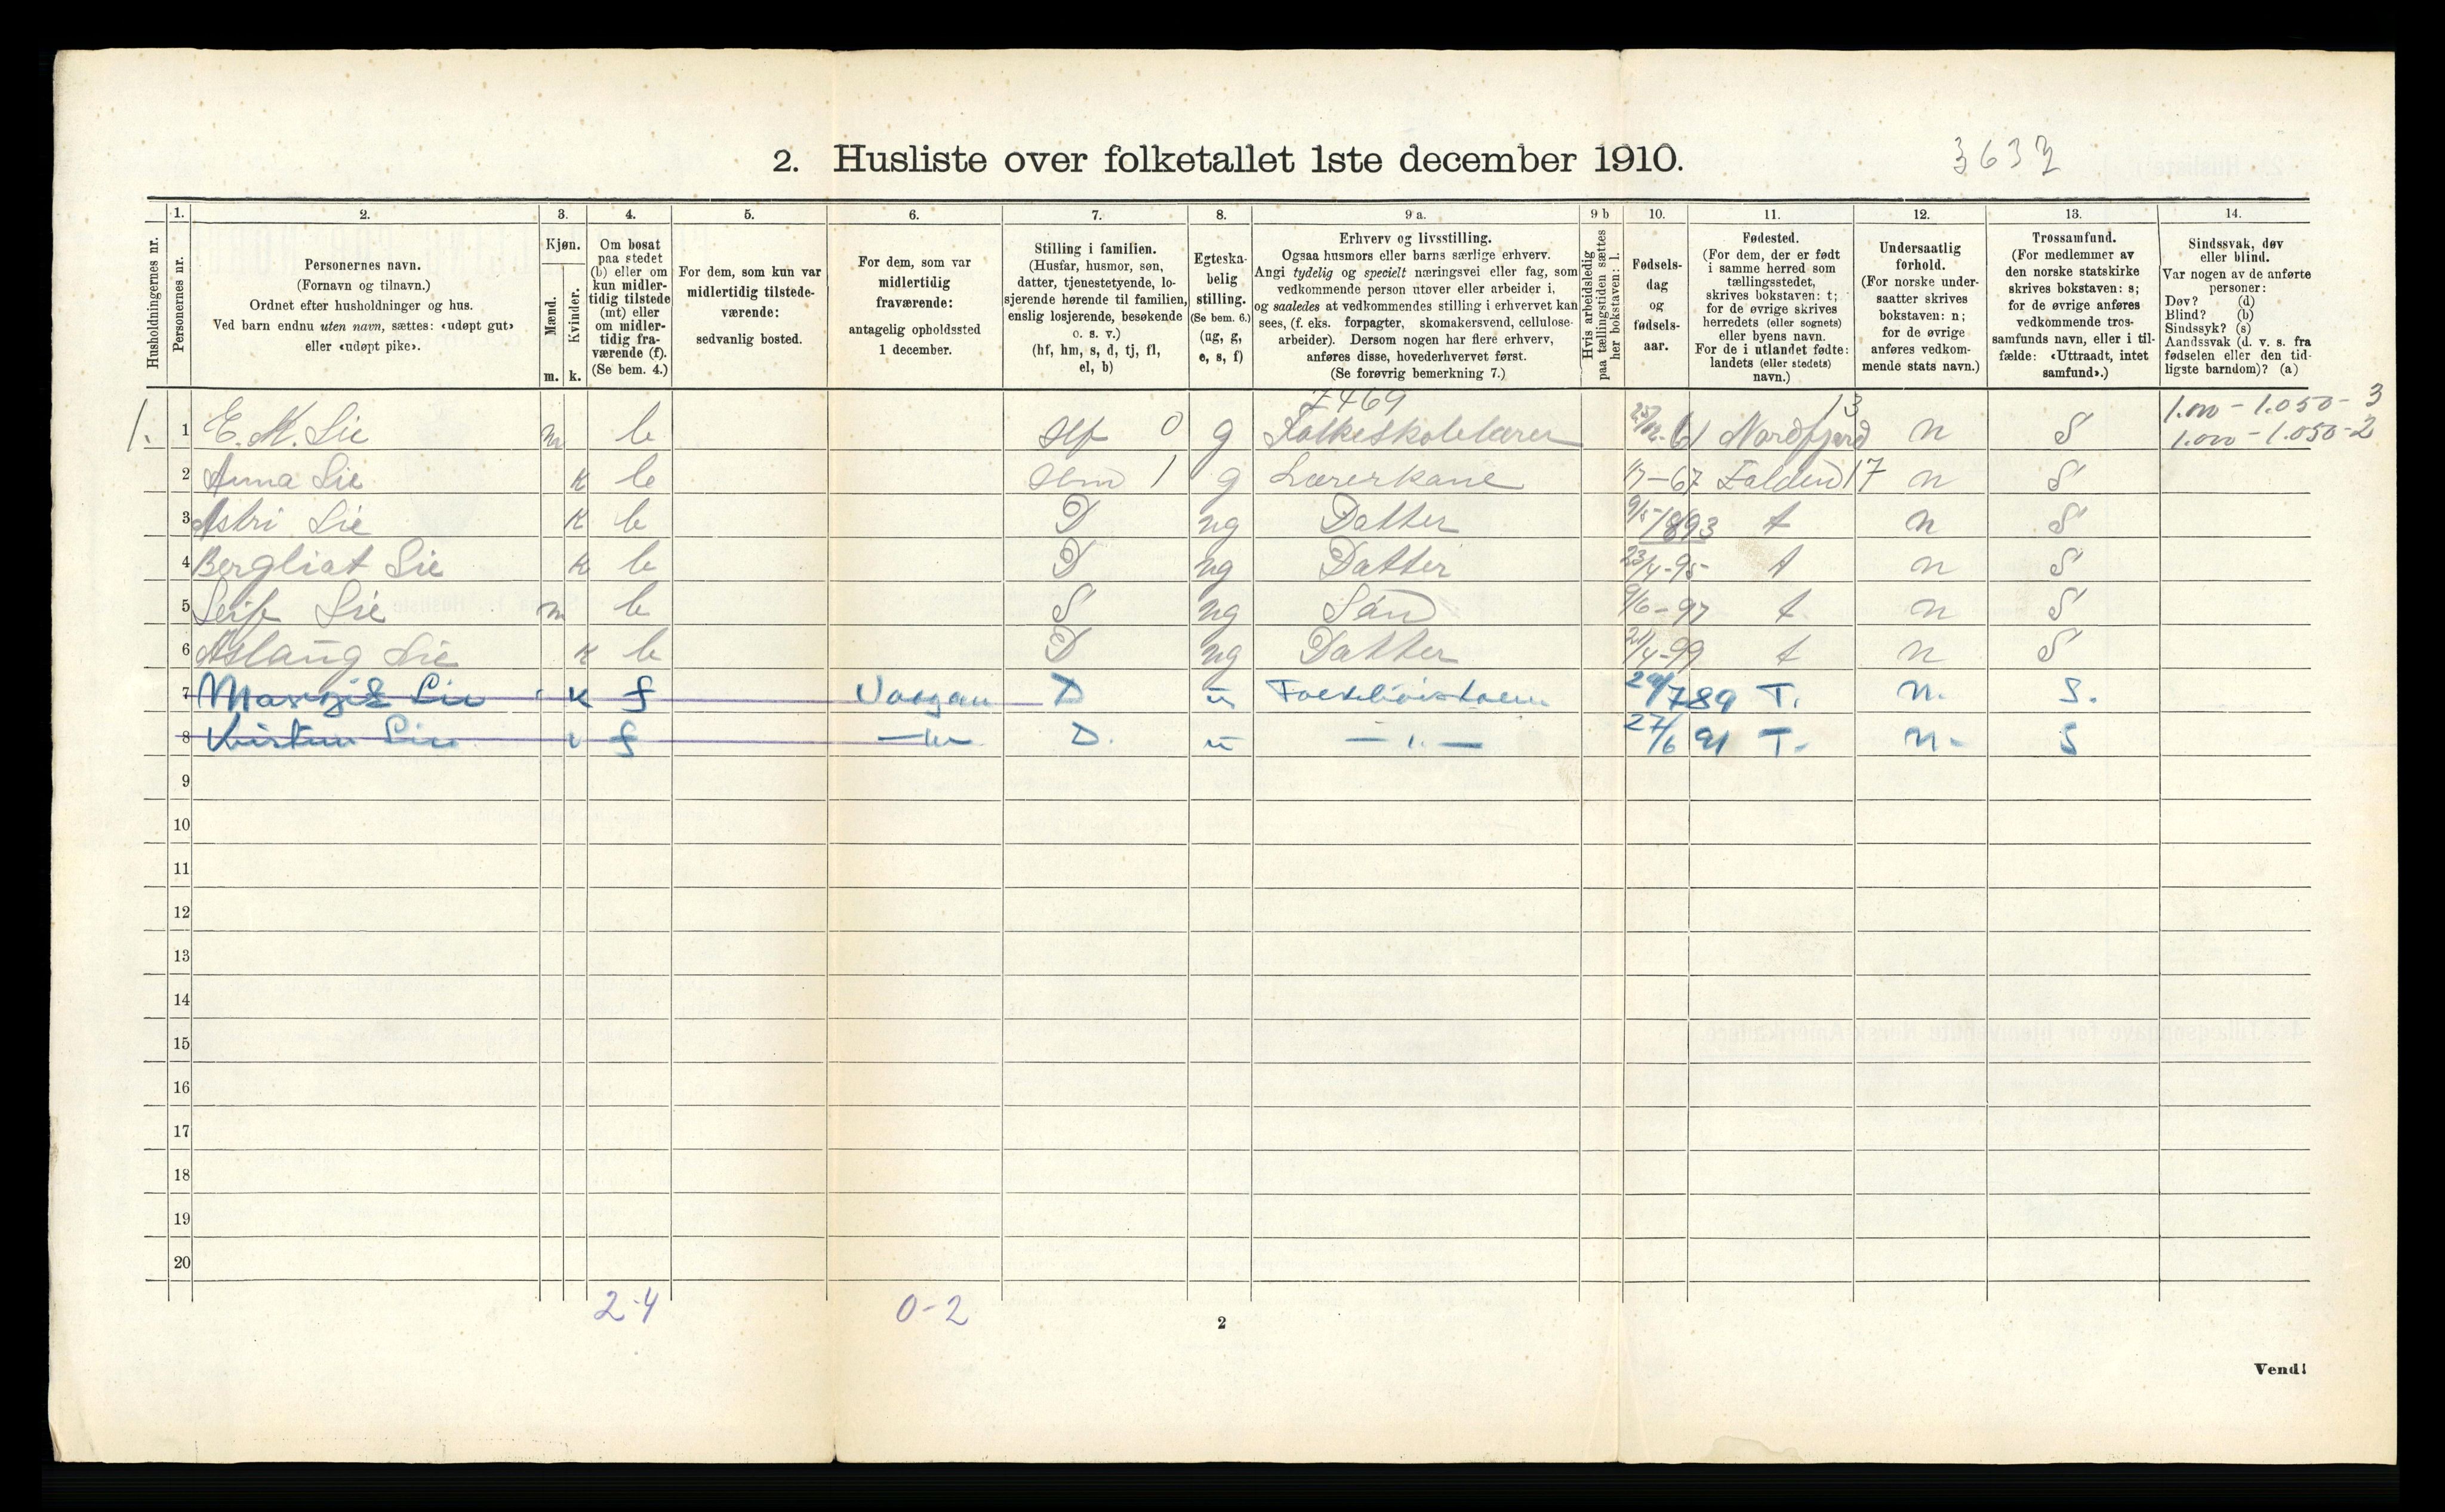 2. Husliste over folketallet 1ste december 1910.
3633
Husholdningernes nr.
1. Personernes nr.
2. Personernes navn.
(Fornavn og tilnavn.)
Ordnet efter husholdninger og hus.
Ved barn endnu uten navn, sættes: «udøpt gut»
eller «udøpt pike».
3. Kjøn.
Mænd. m.
Kvinder. k.
4. Om bosat
paa stedet
(b) eller om
kun midler-
tidig tilstede
(mt) eller
om midler-
tidig fra-
værende (f).
(Se bem. 4.)
5. For dem, som kun var
midlertidig tilstede-
værende:
sedvanlig bosted.
6. For dem, som var
midlertidig
fraværende:
antagelig opholdssted
1 december.
7. Stilling i familien.
(Husfar, husmor, søn,
datter, tjenestetyende, lo-
sjerende hørende til familien,
enslig losjerende, besøkende
o. s. v.)
(hf, hm, s, d, tj, fl,
el, b)
8. Egteska-
belig
stilling.
(Se bem. 6.)
(ug, g,
e, s, f)
9 a. Erhverv og livsstilling.
Ogsaa husmors eller barns særlige erhverv.
Angi tydelig og specielt næringsvei eller fag, som
vedkommende person utøver eller arbeider i,
og saaledes at vedkommendes stilling i erhvervet kan
sees, (f. eks. forpagter, skomakersvend, cellulose-
arbeider). Dersom nogen har flere erhverv,
anføres disse, hovederhvervet først.
(Se forøvrig bemerkning 7.)
9 b Hvis arbeidsledig
paa tællingstiden sættes
her bokstaven: l.
10. Fødsels-
dag
og
fødsels-
aar.
11. Fødested.
(For dem, der er født
i samme herred som
tællingsstedet,
skrives bokstaven: t;
for de øvrige skrives
herredets (eller sognets)
eller byens navn.
For de i utlandet fødte:
landets (eller stedets)
navn.)
12. Undersaatlig
forhold.
(For norske under-
saatter skrives
bokstaven: n;
for de øvrige
anføres vedkom-
mende stats navn.)
13. Trossamfund.
(For medlemmer av
den norske statskirke
skrives bokstaven: s;
for de øvrige anføres
vedkommende tros-
samfunds navn, eller i til-
fælde: «Uttraadt, intet
samfund».)
14. Sindssvak, døv
eller blind.
Var nogen av de anførte
personer:
Døv? (d)
Blind? (b)
Sindssyk? (s)
Aandssvak (d. v. s. fra
fødselen eller den tid-
ligste barndom)? (a)
7469 13 1.000 - 1.050 - 3
1. 1 E. M. Lie m b Hf 0 g Folkeskolelærer 25/12-61 Nordfjord n S 1.000 - 1.050 - 2
2 Anna Lie K b Hm 1 g Lærerkone 1/7-67 17 n S
3 Astri Lie K b D ug Datter 9/5-1893 t n S
4 Bergliot Lie K b D ug Datter 23/4-95 t n S
5 Leif Lie m b S ug Sön 9/6-97 t n S
6 Aslaug Lie K b D ug Datter 21/4-99 t n S
7 Lie K f D u 89 T. n. S.
8 Lie f D. u - " - 27/6 91 T. n. S
9
10
11
12
13
14
15
16
17
18
19
20
2-4 0-2
2
Vend!